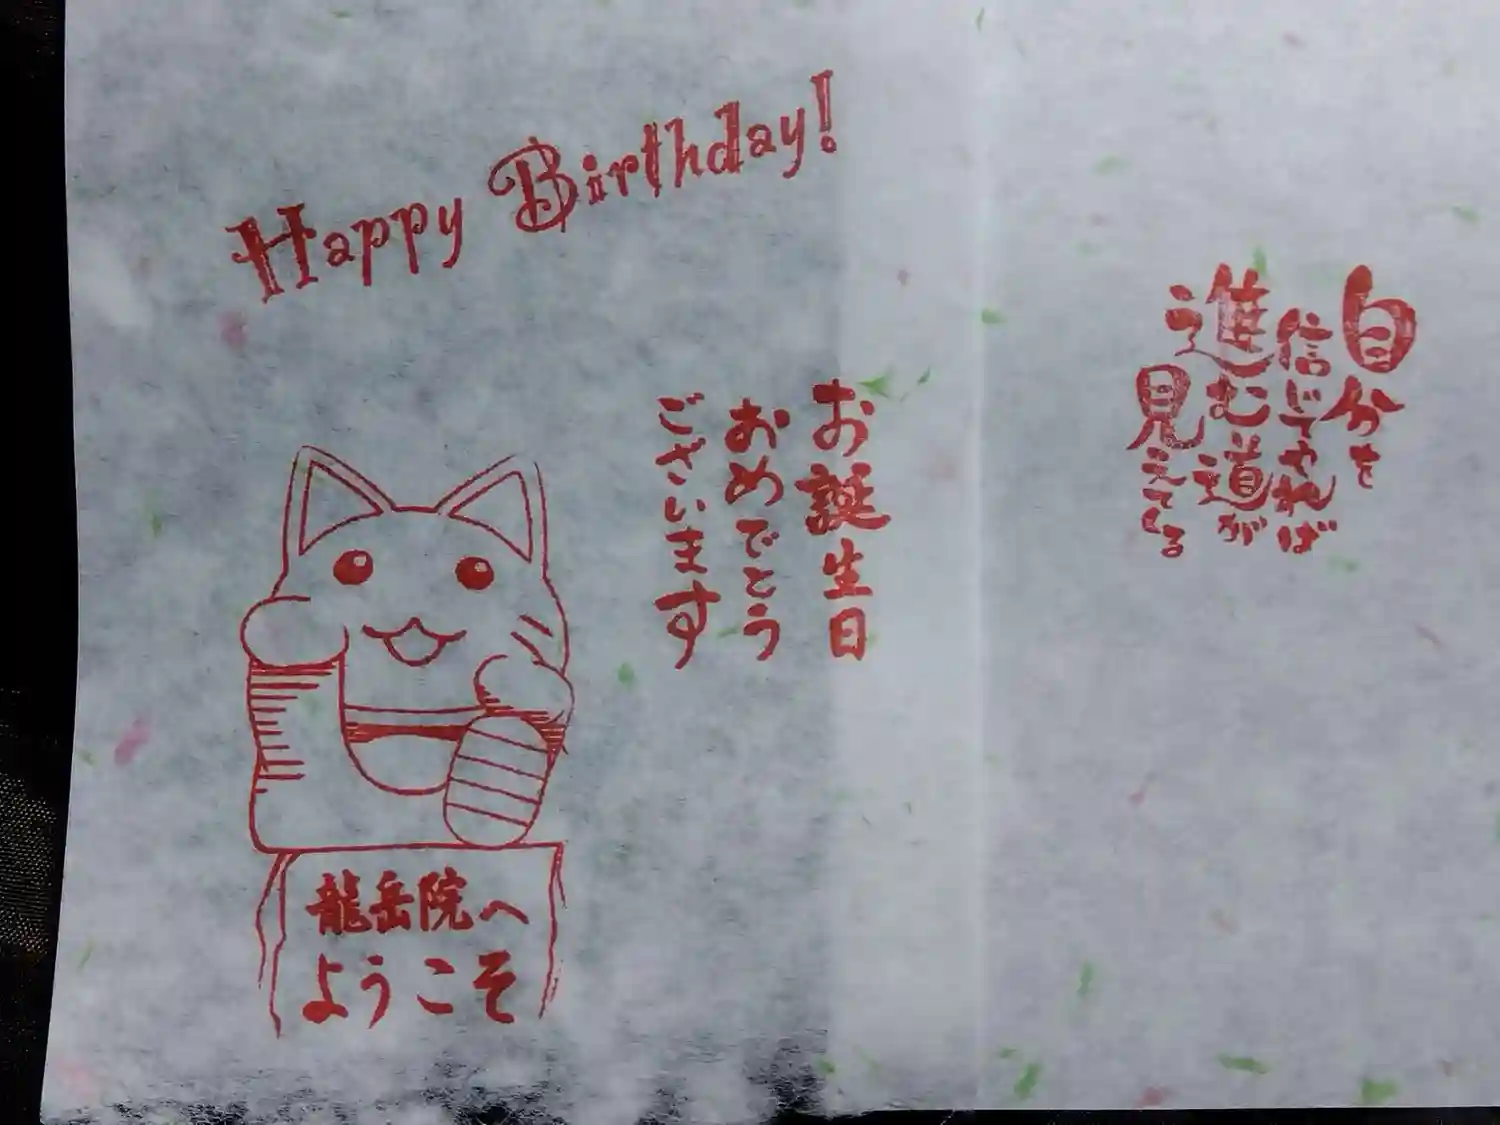 Happy Birthday!
お誕生日
おめでとう
ございます
龍岳院へ
ようこそ
自分を
信じてやれば
進む道が
見えてくる